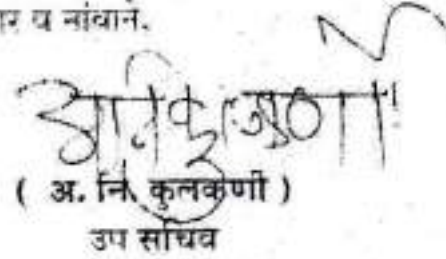 व नांवाने.
( अ. नि. कुलकर्णी )
उप सचिव